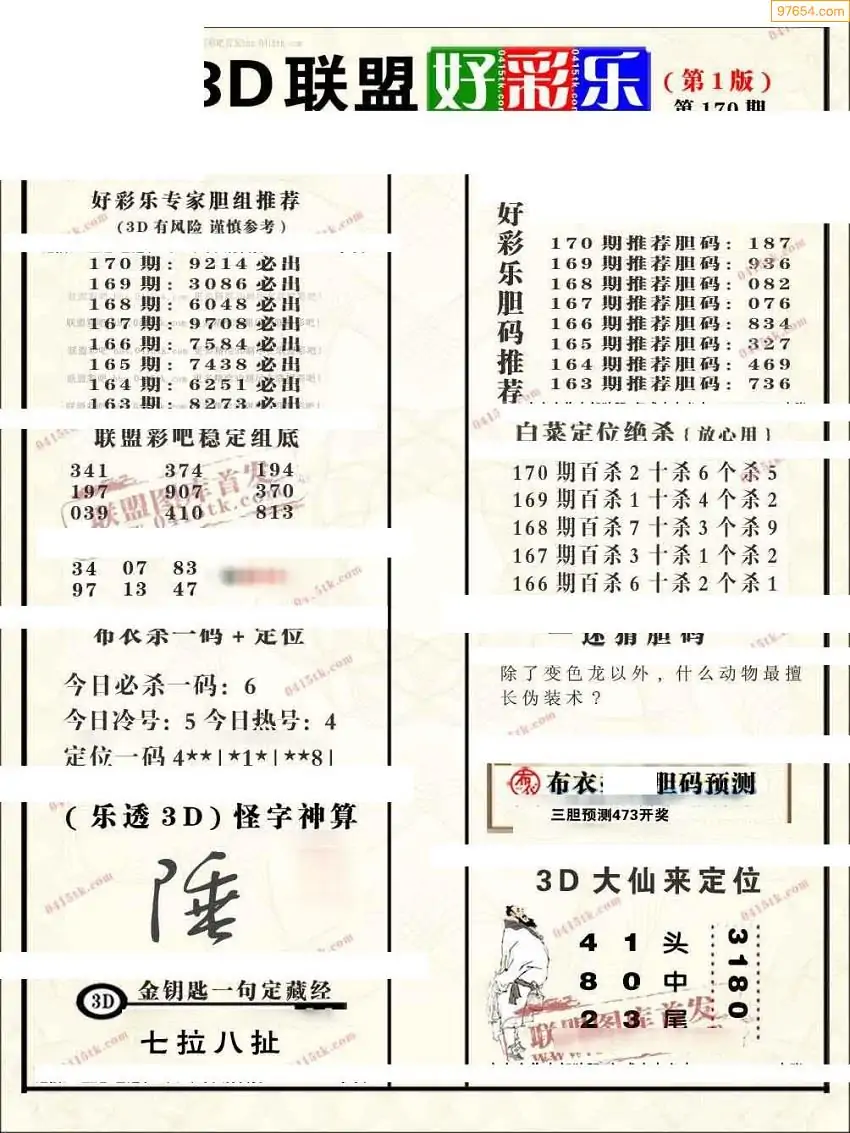 97654.com
3D联盟 好彩乐
(第1版)
第170期
好彩乐专家胆组推荐
(3D有风险 谨慎参考)
170期: 9214必出
169期: 3086必出
168期: 6048必出
167期: 9708必出
166期: 7584必出
165期: 7438必出
164期: 6251必出
163期: 8273必出
联盟彩吧稳定组底
341 374 194
197 907 370
039 410 813
34 07 83
97 13 47
布衣杀一码+定位
今日必杀一码: 6
今日冷号: 5 今日热号: 4
定位一码 4**|*1*|**8|
(乐透3D)怪字神算
陲
3D 金钥匙一句定藏经
七拉八扯
好彩乐胆码推荐
170期推荐胆码: 187
169期推荐胆码: 936
168期推荐胆码: 082
167期推荐胆码: 076
166期推荐胆码: 834
165期推荐胆码: 327
164期推荐胆码: 469
163期推荐胆码: 736
白菜定位绝杀{放心用}
170期百杀2十杀6个杀5
169期百杀1十杀4个杀2
168期百杀7十杀3个杀9
167期百杀3十杀1个杀2
166期百杀6十杀2个杀1
一迷猜胆码
除了变色龙以外，什么动物最擅
长伪装术？
布衣 胆码预测
三胆预测473开奖
3D大仙来定位
4 1 头
8 0 中
2 3 尾
3180
联盟图库首发
0415tk.com